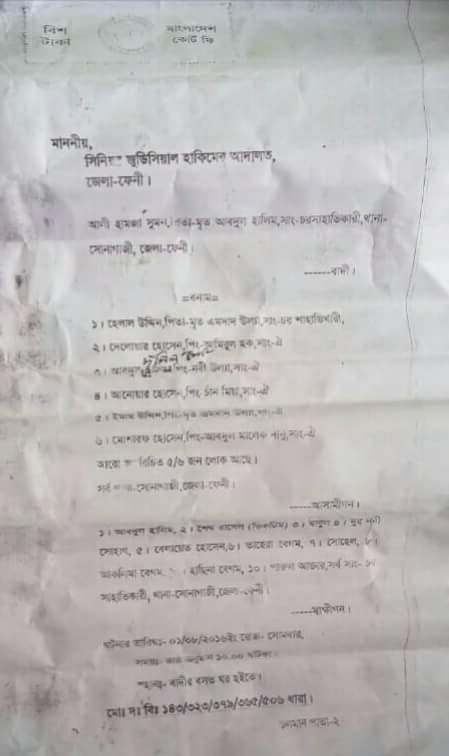 বিশ টাকা
বাংলাদেশ কোর্ট ফি
মাননীয়,
সিনিয়র জুডিসিয়াল হাকিমের আদালত,
জেলা-ফেনী।
আলী হামজা সুমন,পিতা-মৃত আবদুল হালিম,সাং-চরসাহাভিকারী,থানা-
সোনাগাজী, জেলা-ফেনী।
------বাদী।
=বনাম=
১। হেলাল উদ্দিন,পিতা-মৃত এমদাদ উল্যা,সাং-চর শাহাভিখারী,
২। দেলোয়ার হোসেন,পিং-আমিনুল হক,সাং-ঐ
৩। আবদুল পিং-নবী উল্যা,সাং-ঐ
৪। আনোয়ার হোসেন,পিং চান মিয়া,সাং-ঐ
৫। ইমাম উদ্দিন,পিং-মৃত এমদাদ উল্যা,সাং-ঐ
৬। মোশারফ হোসেন,পিং-আবদুল মালেক সাং-ঐ
আরো ৫/৬ জন লোক আছে।
সর্ব থানা-সোনাগাজী,জেলা-ফেনী।
-----আসামীগন।
১। আবদুল হালিম, ২। শেখ রাসেল (ভিকটিম) ৩। ৪। নুর নবী
সোহাগ, ৫। বেলায়েত হোসেন,৬। তাহেরা বেগম, ৭। সোহেল, ৮।
বেগম, হাছিনা বেগম, ১০। আক্তার,সর্ব সাং- চর
সাহাভিকারী, থানা-সোনাগাজী,জেলা-ফেনী।
-----স্বাক্ষীগন।
ঘটনার তারিখঃ- ০১/০৮/২০১৬ইং রোজ- সোমবার,
সময়ঃ- রাত অনুমান ১০.০০ ঘটিকা।
স্থানঃ- বাদীর বসত ঘর হইতে।
মোঃ দঃ বিঃ ১৪৩/৩২৩/৩৭৯/৩৬৫/৫০৬ ধারা।
চলমান পাতা-২